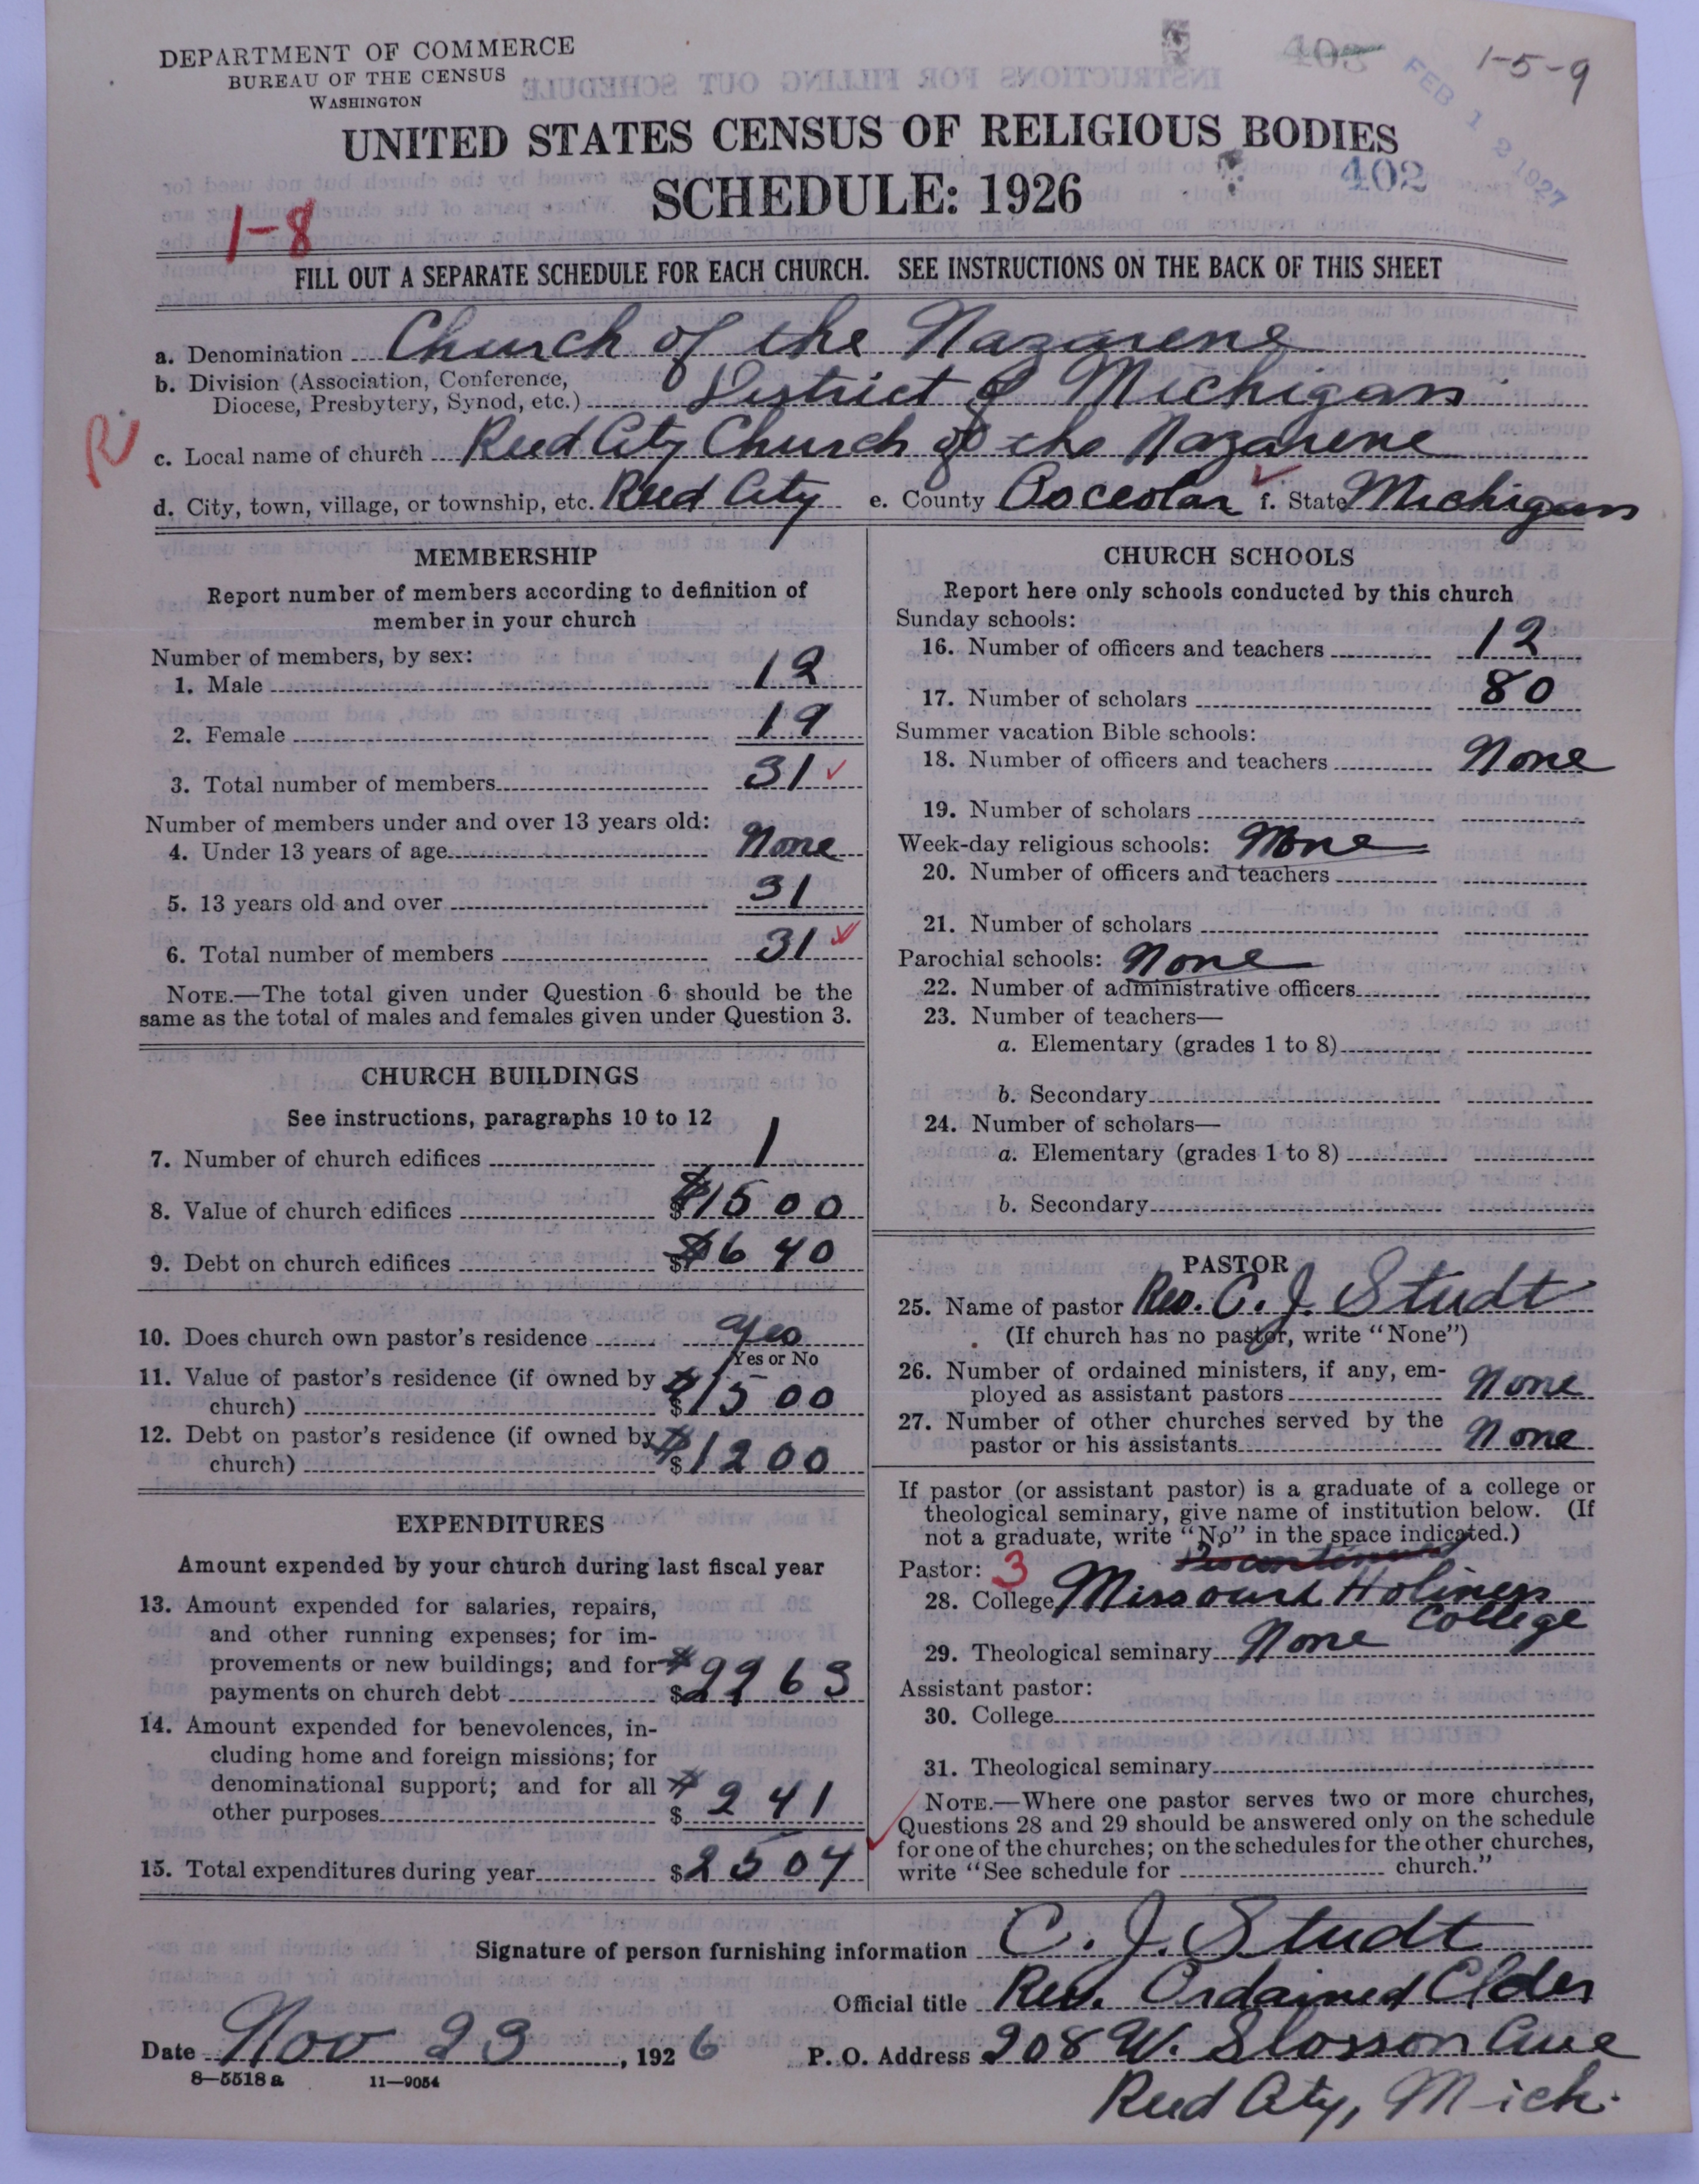 DEPARTMENT OF COMMERCE
BUREAU OF THE CENSUS
WASHINGTON
403
1-5-9
FEB 12 1927
UNITED STATES CENSUS OF RELIGIOUS BODIES
SCHEDULE: 1926
402
1-8
FILL OUT A SEPARATE SCHEDULE FOR EACH CHURCH. SEE INSTRUCTIONS ON THE BACK OF THIS SHEET
a. Denomination Church of the Nazarene
b. Division (Association, Conference,
Diocese, Presbytery, Synod, etc.) District of Michigan
R
c. Local name of church Reed City Church of the Nazarene
d. City, town, village, or township, etc. Reed City e. County Osceolar f. State Michigan
MEMBERSHIP
Report number of members according to definition of
member in your church
Number of members, by sex:
1. Male 12
2. Female 19
3. Total number of members 31 ✓
Number of members under and over 13 years old:
4. Under 13 years of age None
5. 13 years old and over 31
6. Total number of members 31 ✓
NOTE.—The total given under Question 6 should be the
same as the total of males and females given under Question 3.
CHURCH BUILDINGS
See instructions, paragraphs 10 to 12
7. Number of church edifices 1
8. Value of church edifices $ $1500
9. Debt on church edifices $ $640
10. Does church own pastor's residence yes
Yes or No
11. Value of pastor's residence (if owned by
church) $ $1500
12. Debt on pastor's residence (if owned by
church) $ $1200
EXPENDITURES
Amount expended by your church during last fiscal year
13. Amount expended for salaries, repairs,
and other running expenses; for im-
provements or new buildings; and for
payments on church debt $ $2263
14. Amount expended for benevolences, in-
cluding home and foreign missions; for
denominational support; and for all
other purposes $ $241
15. Total expenditures during year $2504
CHURCH SCHOOLS
Report here only schools conducted by this church
Sunday schools:
16. Number of officers and teachers 12
17. Number of scholars 80
Summer vacation Bible schools:
18. Number of officers and teachers None
19. Number of scholars
Week-day religious schools: None
20. Number of officers and teachers
21. Number of scholars
Parochial schools: None
22. Number of administrative officers
23. Number of teachers—
a. Elementary (grades 1 to 8)
b. Secondary
24. Number of scholars—
a. Elementary (grades 1 to 8)
b. Secondary
PASTOR
25. Name of pastor Rev. C. J. Studt
(If church has no pastor, write "None")
26. Number of ordained ministers, if any, em-
ployed as assistant pastors None
27. Number of other churches served by the
pastor or his assistants None
If pastor (or assistant pastor) is a graduate of a college or
theological seminary, give name of institution below. (If
not a graduate, write "No" in the space indicated.)
Pastor: 3
28. College Missouri Holiness
College
29. Theological seminary None
Assistant pastor:
30. College
31. Theological seminary
NOTE.—Where one pastor serves two or more churches,
Questions 28 and 29 should be answered only on the schedule
for one of the churches; on the schedules for the other churches,
write "See schedule for church."
Signature of person furnishing information C. J. Studt
Official title Rev. Ordained Elder
Date Nov 23, 1926 P. O. Address 208 W. Slosson Ave
8—5518 a 11—9054
Reed City, Mich.